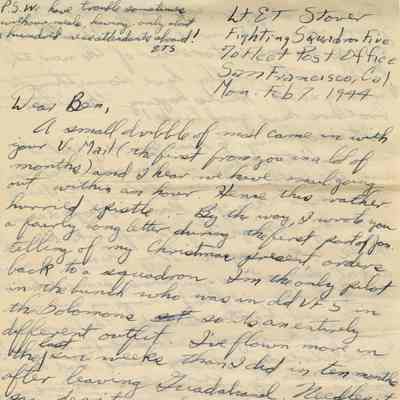 P.S. We have trouble sometimes
with our meals having only about
a hundred mess attendants aboard!
ETS
Lt. E T Stover
Fighting Squadron Five
% Fleet Post Office
San Francisco, Cal.
Mon. Feb 7, 1944
Dear Ben,
A small dribble of mail came in with
your V. Mail (the first from you in a lot of
months) and I hear we have mail going
out within an hour. Hense this rather
hurried epistle. By the way, I wrote you
a fairly long letter during the first part of Jan.
telling of my Christmas present, orders
back to a squadron. I'm the only pilot
in the bunch who was in old VF 5 in
the Solomons so its an entirely
different outfit. I've flown more in
the last four weeks than I did in ten months
after leaving Guadalcanal. Needless t